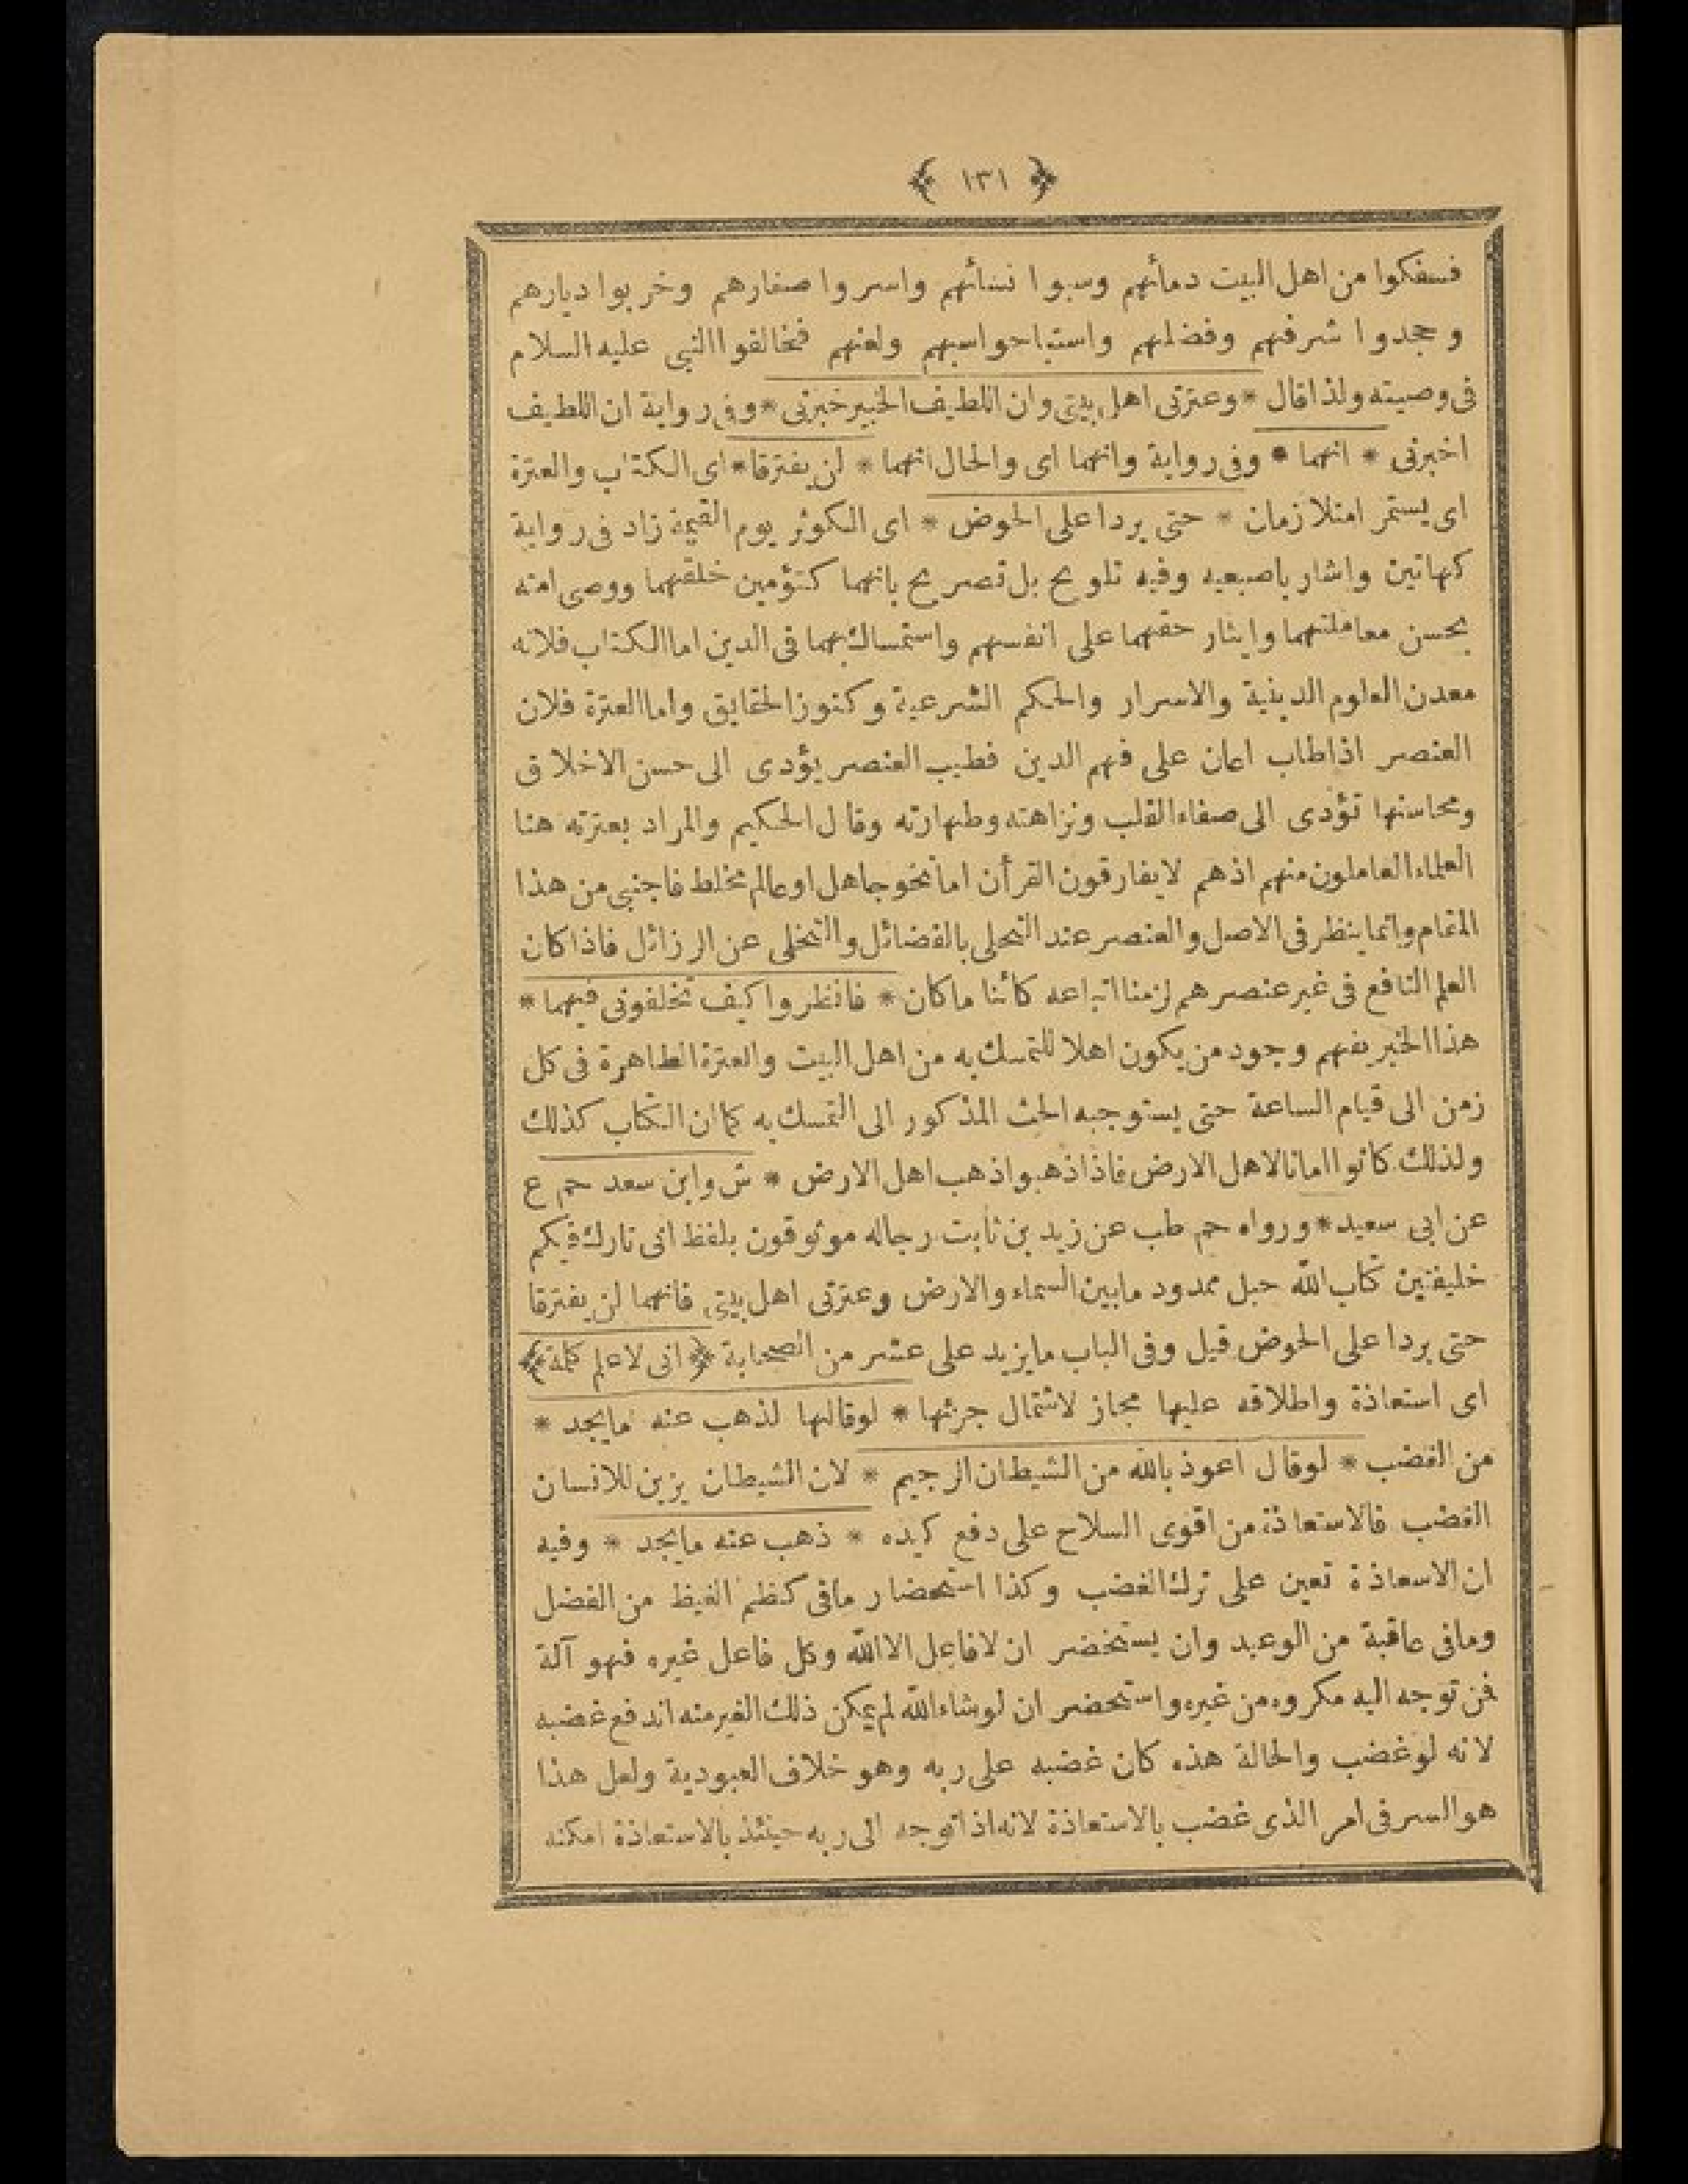 ﴿ ١٣١ ﴾
فسفكوا من اهل البيت دمائهم وسبوا نسائهم واسروا صغارهم وخربوا ديارهم
وجحدوا شرفهم وفضلهم واستباحوا سبهم ولعنهم فخالفوا النبى عليه السلام
فى وصيته ولذا قال * وعترتى اهل بيتى وان اللطيف الخبير خبرنى * وفى رواية ان اللطيف
اخبرنى * انهما * وفى رواية وانهما اى والحال انهما * لن يفترقا * اى الكتاب والعترة
اى يستمر امتلا زمان * حتى يردا على الحوض * اى الكوثر يوم القيمة زاد فى رواية
كهاتين واشار باصبعيه وفيه تلويح بل تصريح بانهما كتؤمين خلقهما ووصى امته
بحسن معاملتهما وايثار حقهما على انفسهم واستمساك بهما فى الدين اما الكتاب فلانه
معدن العلوم الدينية والاسرار والحكم الشرعية وكنوز الحقايق واما العترة فلان
العنصر اذا طاب اعان على فهم الدين فطيب العنصر يؤدى الى حسن الاخلاق
ومحاسنها تؤدى الى صفاء القلب ونزاهته وطهارته وقال الحكيم والمراد بعترته هنا
العلماء العاملون منهم اذ هم لا يفارقون القرأن اما نحو جاهل او عالم مخلط فاجنبى من هذا
المقام وانما ينظر فى الاصل والعنصر عند التحلى بالفضائل والتخلى عن الرزائل فاذا كان
العلم النافع فى غير عنصرهم لزمنا اتباعه كائنا ما كان * فانظروا كيف تخلفونى فيهما *
هذا الخبر يفهم وجود من يكون اهلا للتمسك به من اهل البيت والعترة الطاهرة فى كل
زمن الى قيام الساعة حتى يستوجبه الحث المذكور الى التمسك به كما ان الكتاب كذلك
ولذلك كانوا امانا لاهل الارض فاذا ذهبوا ذهب اهل الارض * ش وابن سعد حم ع
عن ابى سعيد * ورواه حم طب عن زيد بن ثابت رجاله موثوقون بلفظ انى تارك فيكم
خليفتين كتاب الله حبل ممدود مابين السماء والارض وعترتى اهل بيتى فانهما لن يفترقا
حتى يردا على الحوض قيل وفى الباب مايزيد على عشر من الصحابة ﴿ انى لاعلم كلة ﴾
اى استعاذة واطلاقه عليها مجاز لاشتمال جرئها * لوقالها لذهب عنه مايجد *
من الغضب * لوقال اعوذ بالله من الشيطان الرجيم * لان الشيطان يزين للانسان
الغضب فالاستعاذة من اقوى السلاح على دفع كيده * ذهب عنه مايجد * وفيه
ان الاسعاذة تعين على ترك الغضب وكذا استحضار مافى كظم الغيظ من الفضل
ومافى عاقبة من الوعيد وان يستحضر ان لا فاعل الا الله وكل فاعل غيره فهو آلة
فمن توجه اليه مكروه من غيره واستحضر ان لوشاء الله لم يمكن ذلك الغير منه اندفع غضبه
لانه لوغضب والحالة هذه كان غضبه على ربه وهو خلاف العبودية ولعل هذا
هو السر فى امر الذى غضب بالاستعاذة لانه اذا توجه الى ربه حينئذ بالاستعاذة امكنه